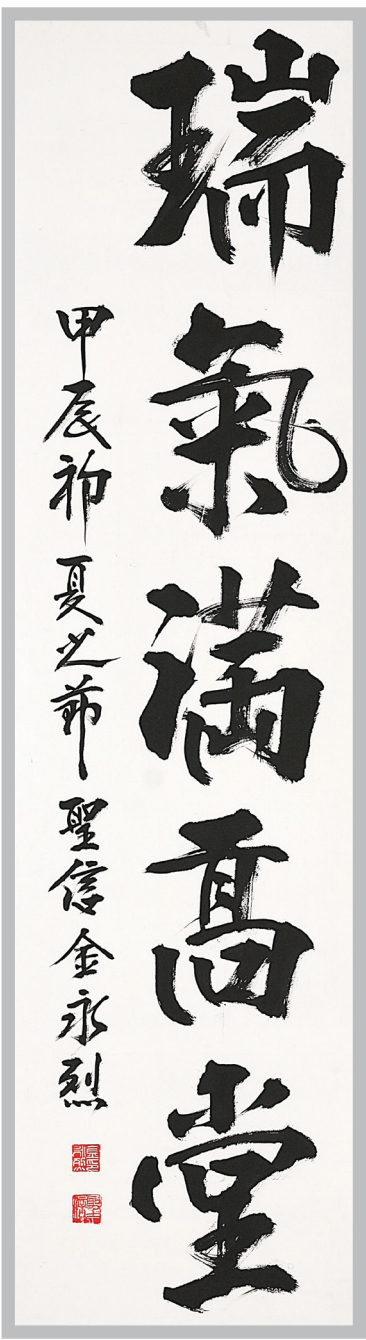 瑞氣滿高堂
甲辰初夏之節 聖信金永烈